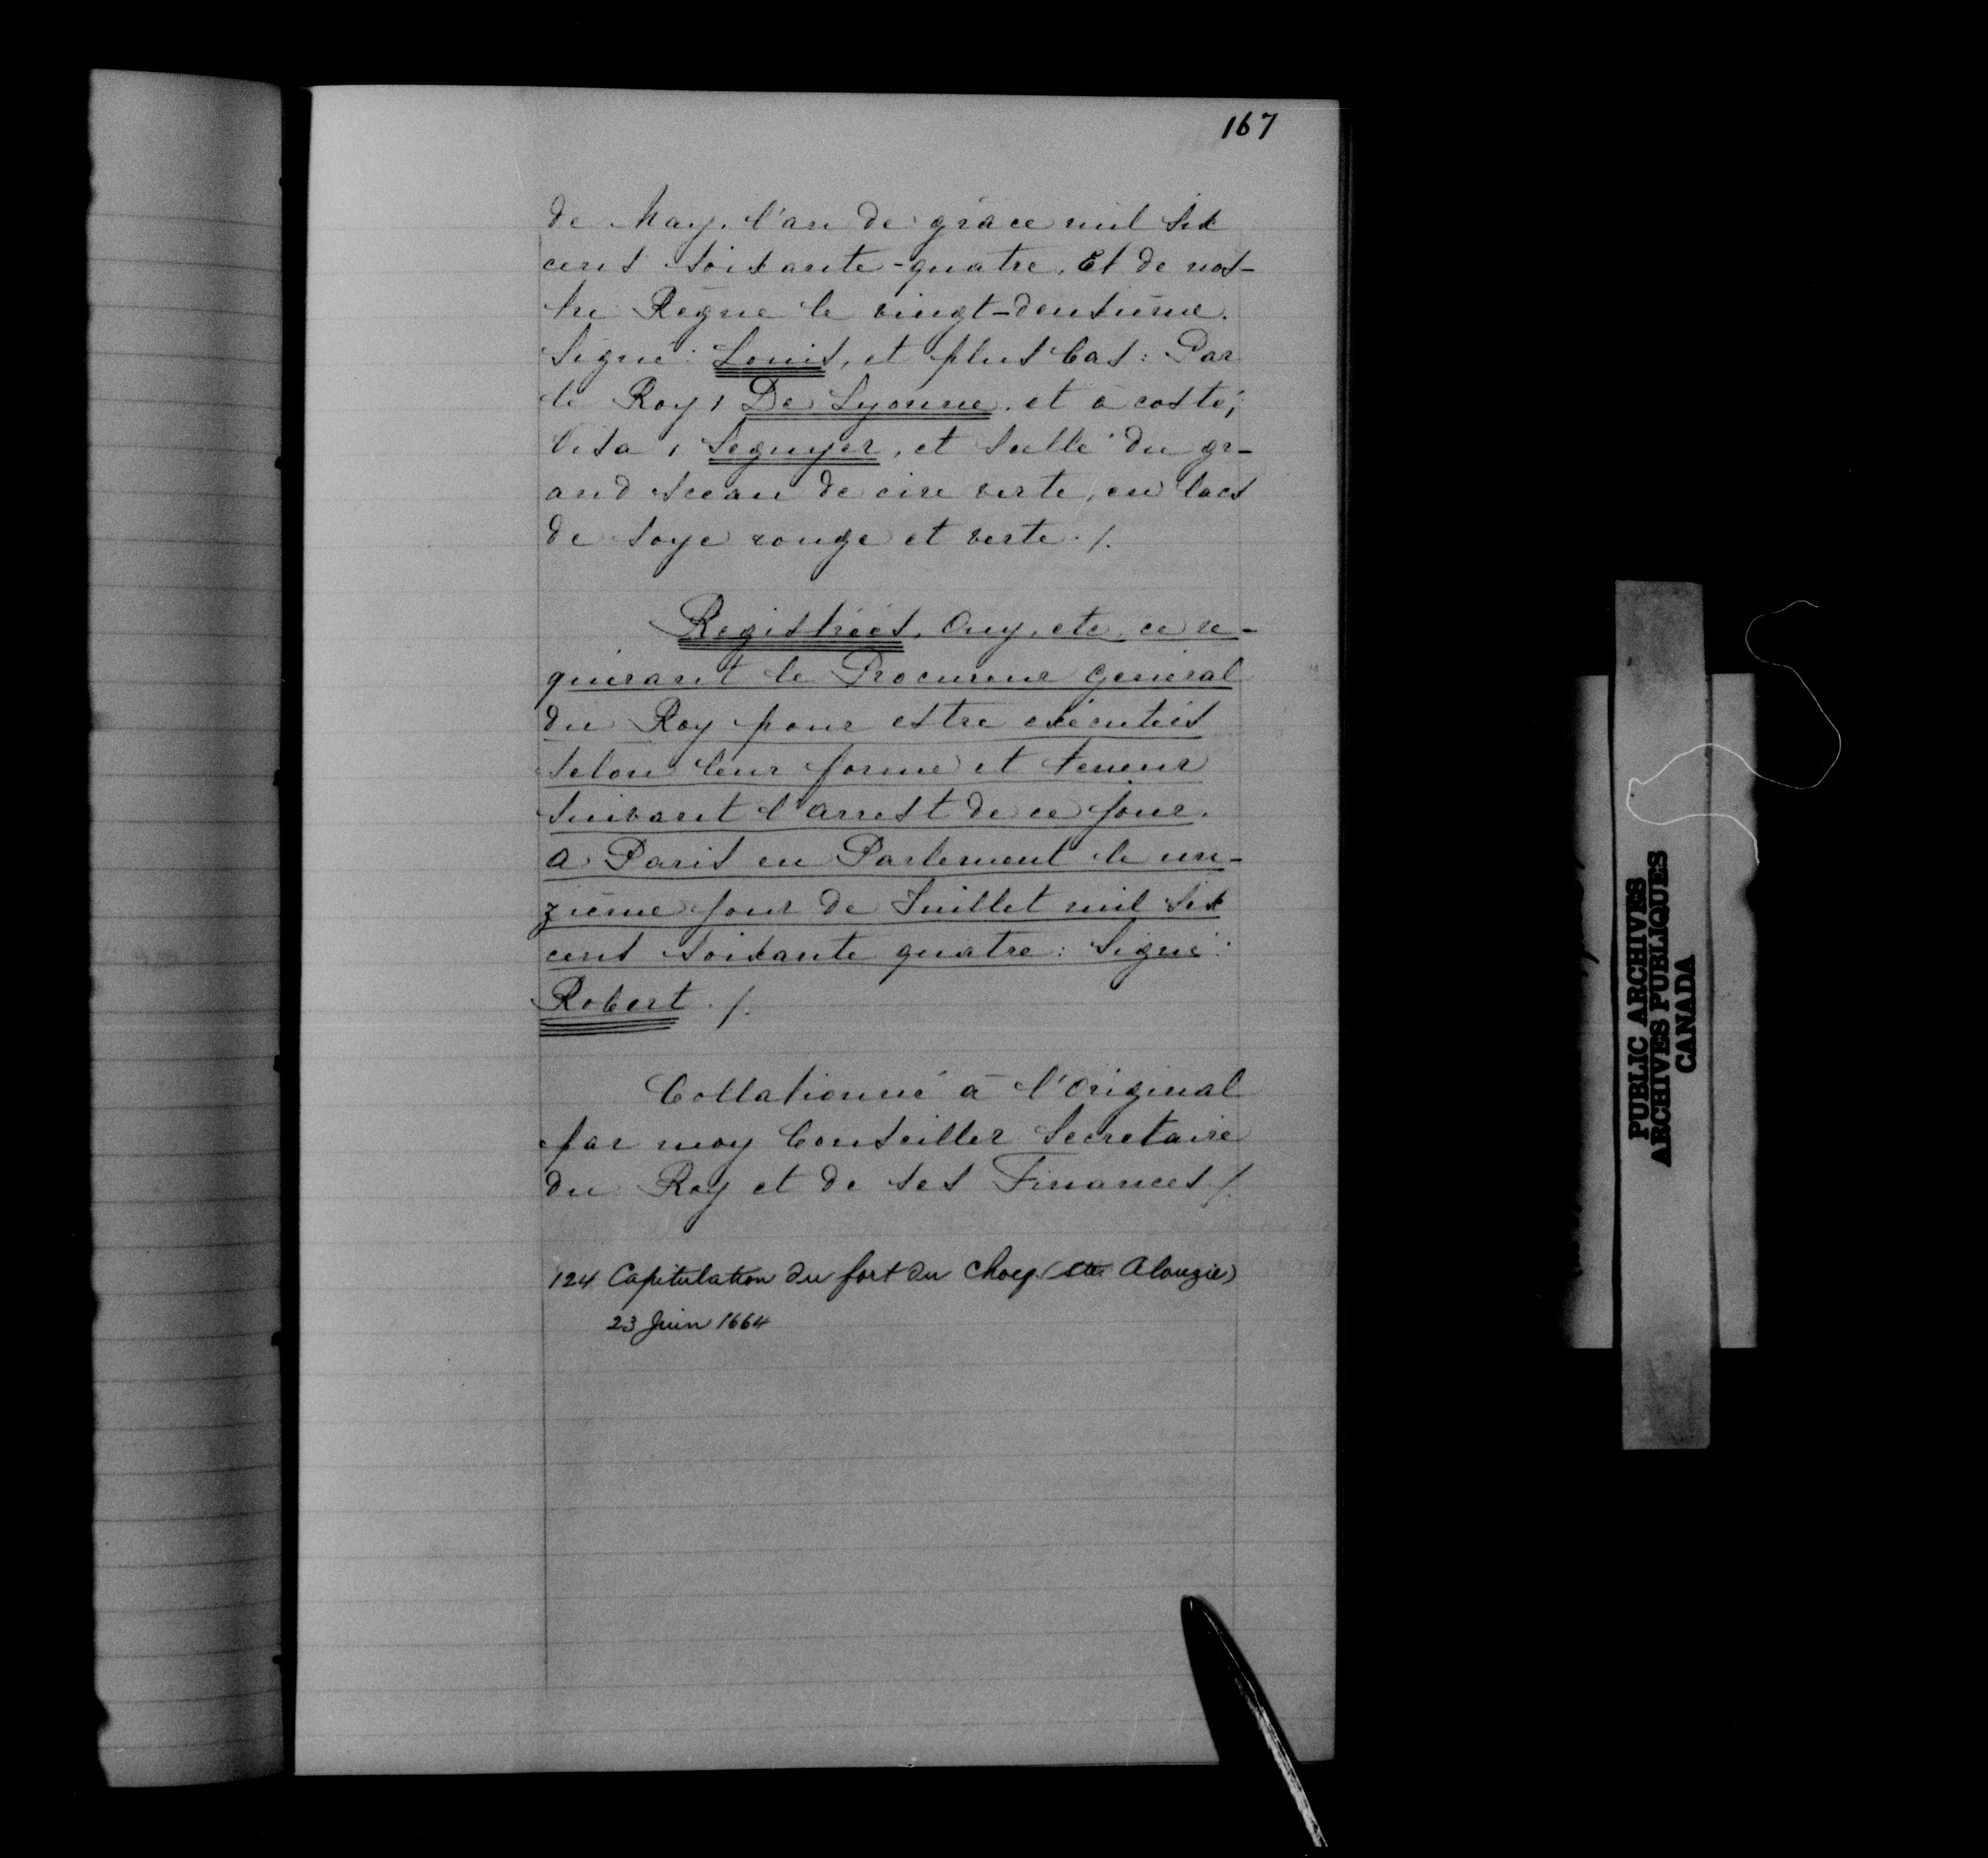 167
de May, l'an de grâce mil six
cens soixante-quatre, Et de nos-
tre Règne le vingt-deuxième.
Signé: Louis, et plus bas: Par
le Roy, De Lyonne, et à costé,
Visa, Seguyer, et Scellé du gr-
and sceau de cire verte, en lacs
de soye rouge et verte ./.
Registrées, Ouy, etc, ce re-
quérant le Procureur Général
du Roy pour estre exécutées
selon leur forme et teneur
suivant l'arrest de ce jour.
A Paris en Parlement le un-
zième jour de Juillet mil six
cens soixante quatre: Signé:
Robert ./.
Collationné à l'original
par moy Conseiller Secretaire
du Roy et de ses Finances /.
124 Capitulation du fort du Choeg. (Ste Alouzie)
23 Juin 1664
PUBLIC ARCHIVES
ARCHIVES PUBLIQUES
CANADA